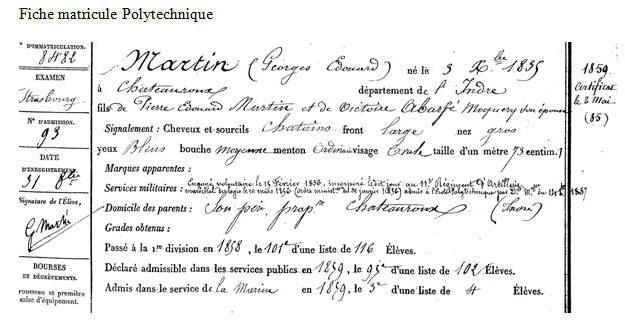 Fiche matricule Polytechnique
N° D'IMMATRICULATION.
8482
EXAMEN
Strasbourg
N° D'ADMISSION.
93
DATE
D'ENREGISTREMENT
31 8bre
Signature de l'Élève,
G. Martin
BOURSES
ET DÉGRÈVEMENTS.
trousseau et première
mise d'équipement.
Martin (Georges Edouard) né le 3 Xbre 1835
à Chateauroux département de l'Indre
fils de Pierre Edouard Martin et de Victoire son épouse
Signalement : Cheveux et sourcils Chatains front large nez gros
yeux Bleus bouche moyenne menton Ordinaire visage Ovale taille d'un mètre 73 centim.
Marques apparentes :
Services militaires : Engagé volontaire le 14 février 1856, incorporé ledit jour au 11e Régiment d'Artillerie 1857
Domicile des parents : Son père, propre Chateauroux (Indre)
Grades obtenus :
Passé à la 1re division en 1858, le 101e d'une liste de 116 Élèves.
Déclaré admissible dans les services publics en 1859, le d'une liste de 102 Élèves.
Admis dans le service de la Marine en 1859, le 3e d'une liste de 4 Élèves.
1859
Certificat
le 2 Mai
(85)